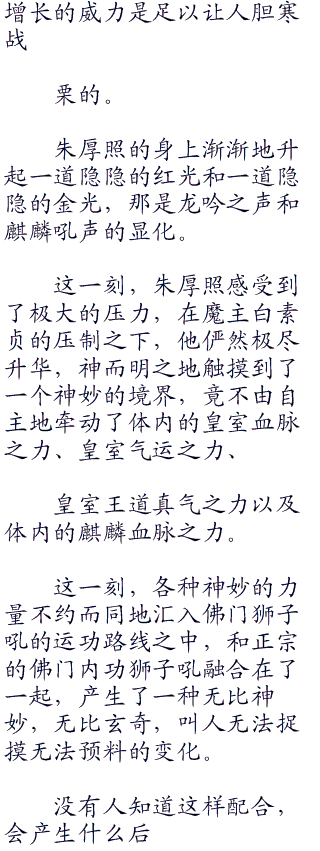 增长的威力是足以让人胆寒
战
栗的。
朱厚照的身上渐渐地升
起一道隐隐的红光和一道隐
隐的金光，那是龙吟之声和
麒麟吼声的显化。
这一刻，朱厚照感受到
了极大的压力，在魔主白素
贞的压制之下，他俨然极尽
升华，神而明之地触摸到了
一个神妙的境界，竟不由自
主地牵动了体内的皇室血脉
之力、皇室气运之力、
皇室王道真气之力以及
体内的麒麟血脉之力。
这一刻，各种神妙的力
量不约而同地汇入佛门狮子
吼的运功路线之中，和正宗
的佛门内功狮子吼融合在了
一起，产生了一种无比神
妙，无比玄奇，叫人无法捉
摸无法预料的变化。
没有人知道这样配合，
会产生什么后